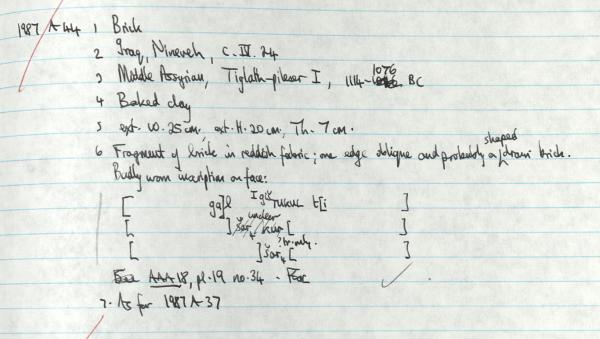 1987 A-44 1 Brick
2 Iraq, Nineveh, c. IV. 24
3 Middle Assyrian, Tiglath-pileser I, 1114-1076 BC
4 Baked clay
5 ext. W. 25 cm. ext. H. 20 cm, Th. 7 cm.
6 Fragment of brick in reddish fabric; one edge oblique and probably a shaped drain brick.
Badly worn inscription on face:
[ ga]l I giš TUKUL t[i ]
[ ] šar kur [ ] unclear
[ ] šar4 [ ]
AAA 18, pl. 19 no. 34 -
7. As for 1987 A-37